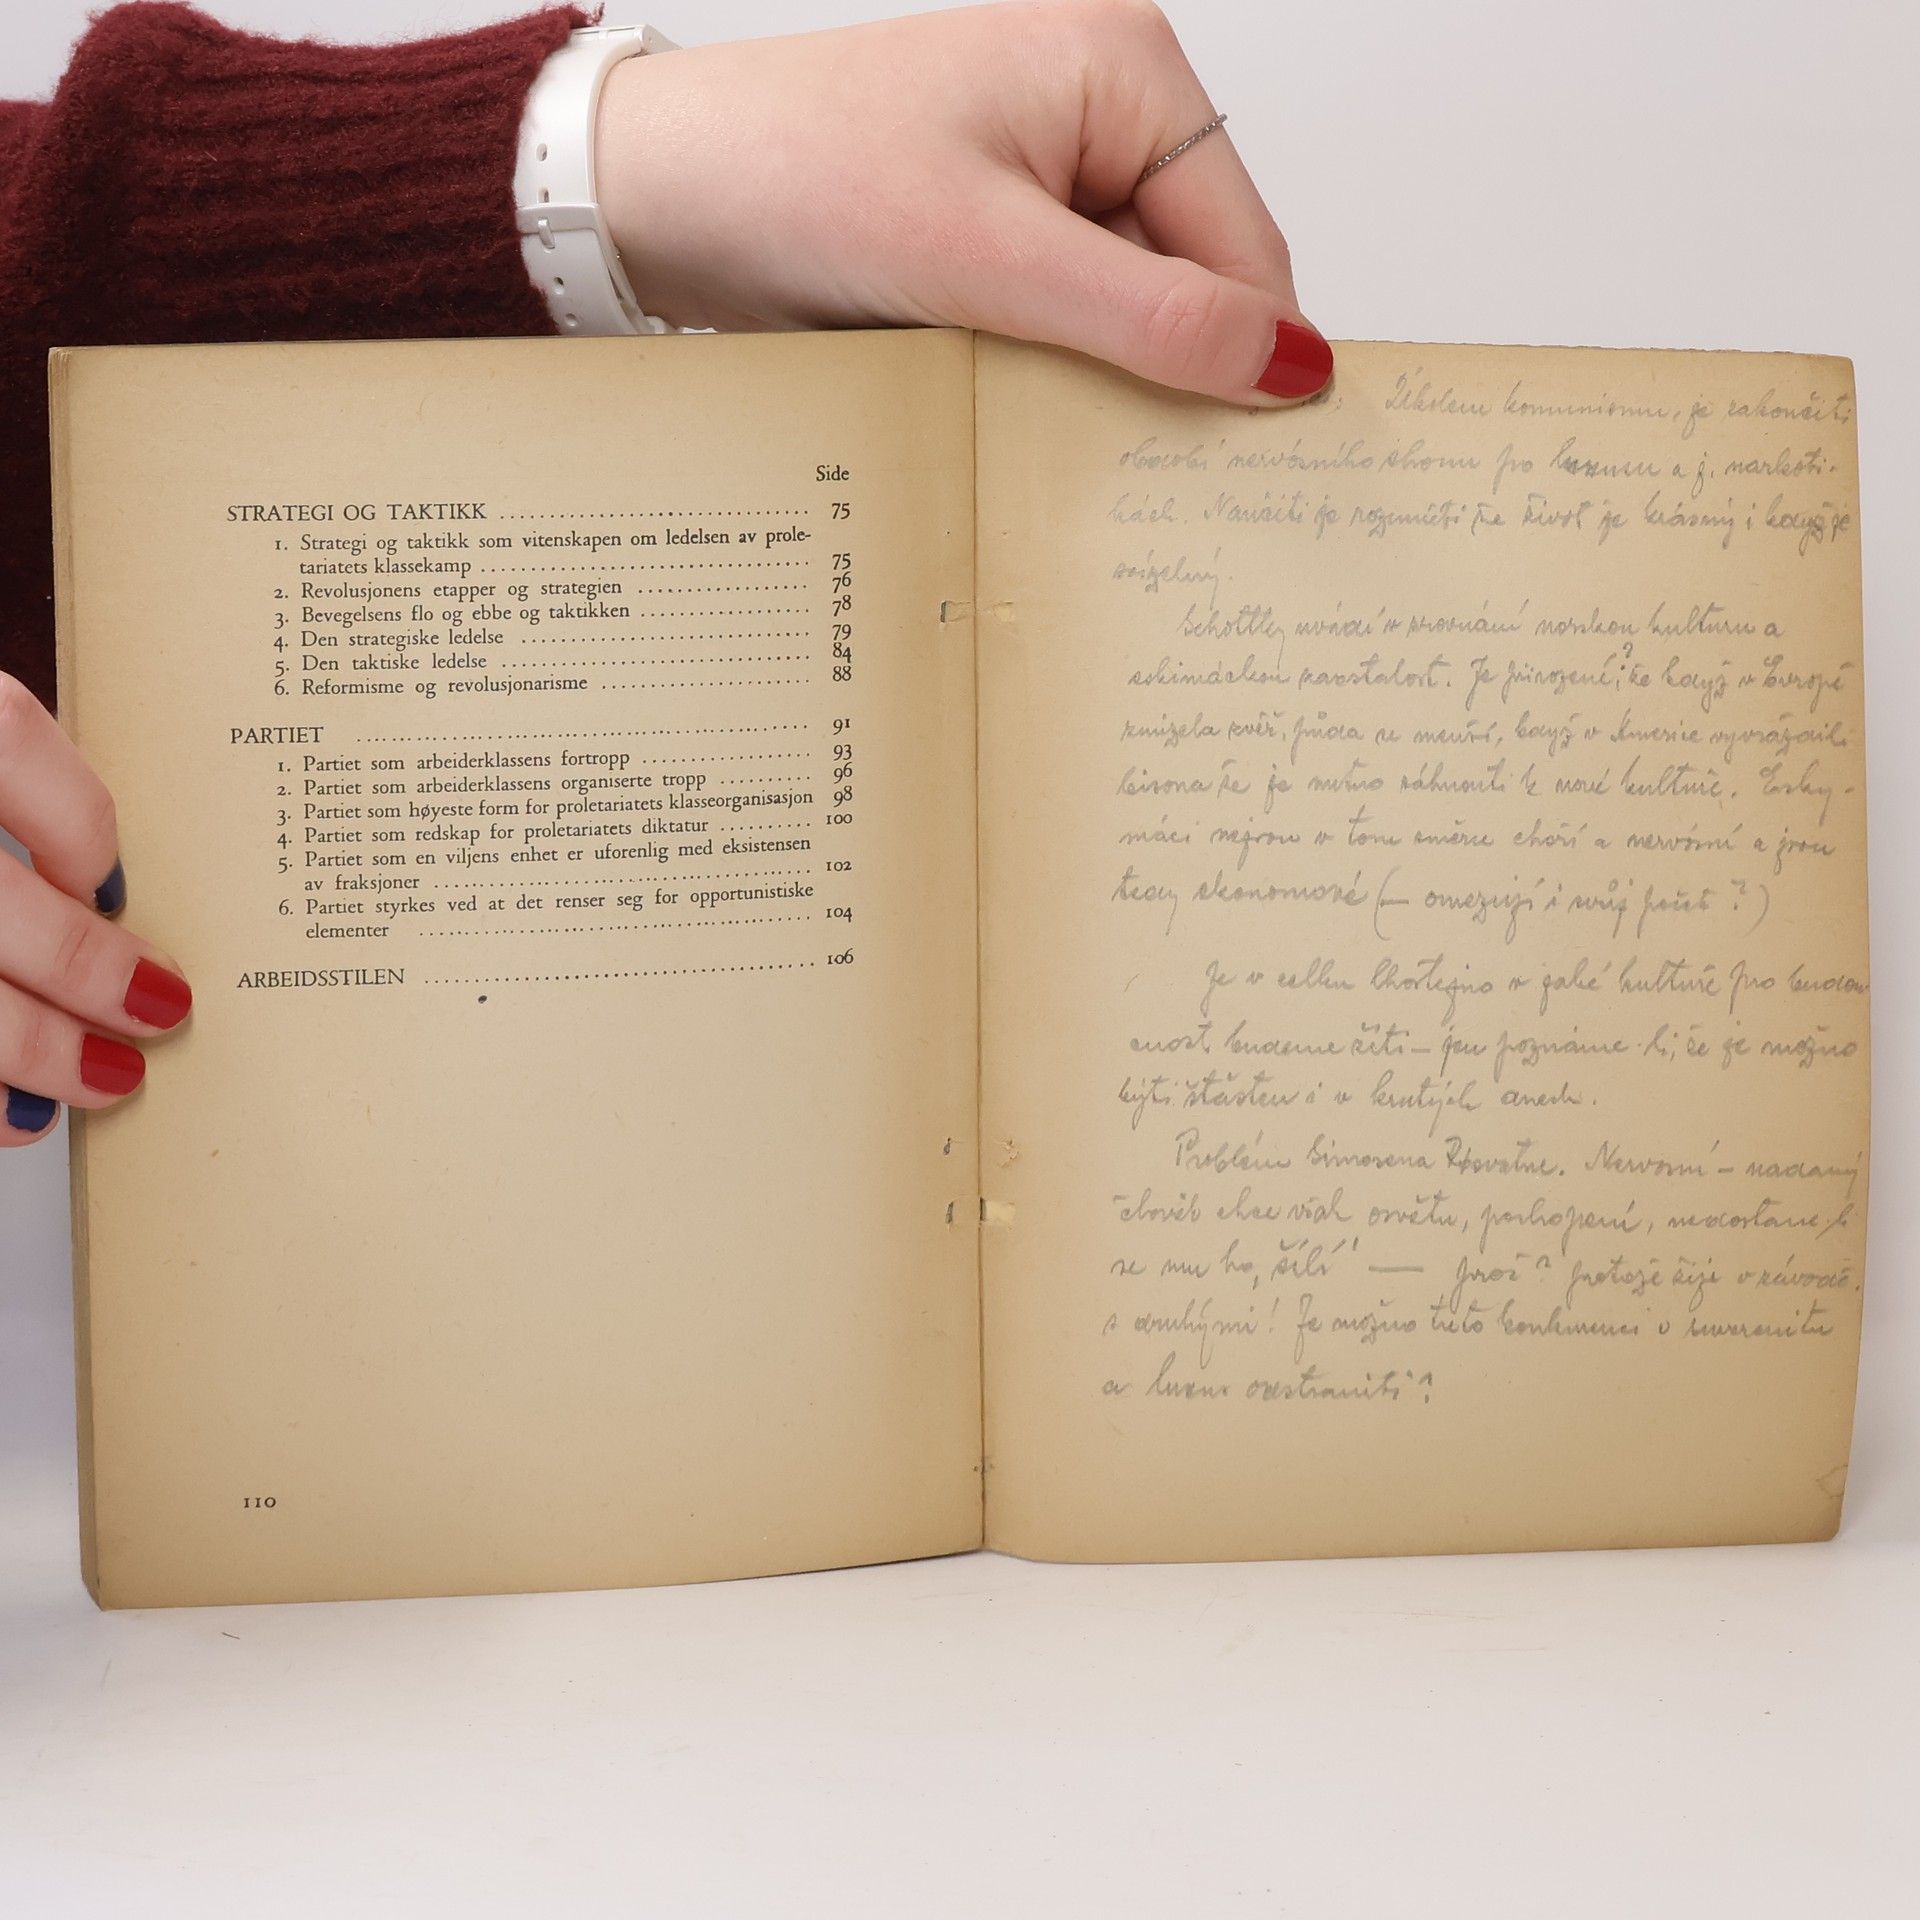 Side
STRATEGI OG TAKTIKK ........................................ 75
1. Strategi og taktikk som vitenskapen om ledelsen av prole-
tariatets klassekamp ........................................ 75
2. Revolusjonens etapper og strategien .................... 76
3. Bevegelsens flo og ebbe og taktikken .................... 78
4. Den strategiske ledelse .................................... 79
5. Den taktiske ledelse ........................................ 84
6. Reformisme og revolusjonarisme ........................ 88
PARTIET .................................................... 91
1. Partiet som arbeiderklassens fortropp .................... 93
2. Partiet som arbeiderklassens organiserte tropp .......... 96
3. Partiet som høyeste form for proletariatets klasseorganisasjon 98
4. Partiet som redskap for proletariatets diktatur .......... 100
5. Partiet som en viljens enhet er uforenlig med eksistensen
av fraksjoner ................................................ 102
6. Partiet styrkes ved at det renser seg for opportunistiske
elementer .................................................... 104
ARBEIDSSTILEN ............................................ 106
110
Úkolem komunismu, je zakončiti
období nervósního shonu po luxusu a j. narkoti-
kách. Naučiti je rozuměti že život je krásný i když je
Schottky uvádí v srovnání norskou kulturu a
eskimáckou zaostalost. Je přirozené, že když v Evropě
zmizela zvěř, půda se menší, když v Americe vyvraždili
bisona že je nutno sáhnouti k nové kultuře. Esky-
máci nejsou v tom směru choří a nervósní a jsou
tedy ekonomové (— omezují i svůj počet ?)
Je v celku lhostejno v jaké kultuře pro budou-
cnost budeme žíti — jen poznáme-li, že je možno
býti šťasten i v krutých dnech.
Problém Simosena Nervosní — nadaný
člověk chce však osvětu, pochopení, nedostane-li
se mu ho, šílí ! — proč ? protože žije v závodě
s druhými ! Je možno tuto konkurenci o
a luxus odstraniti ?